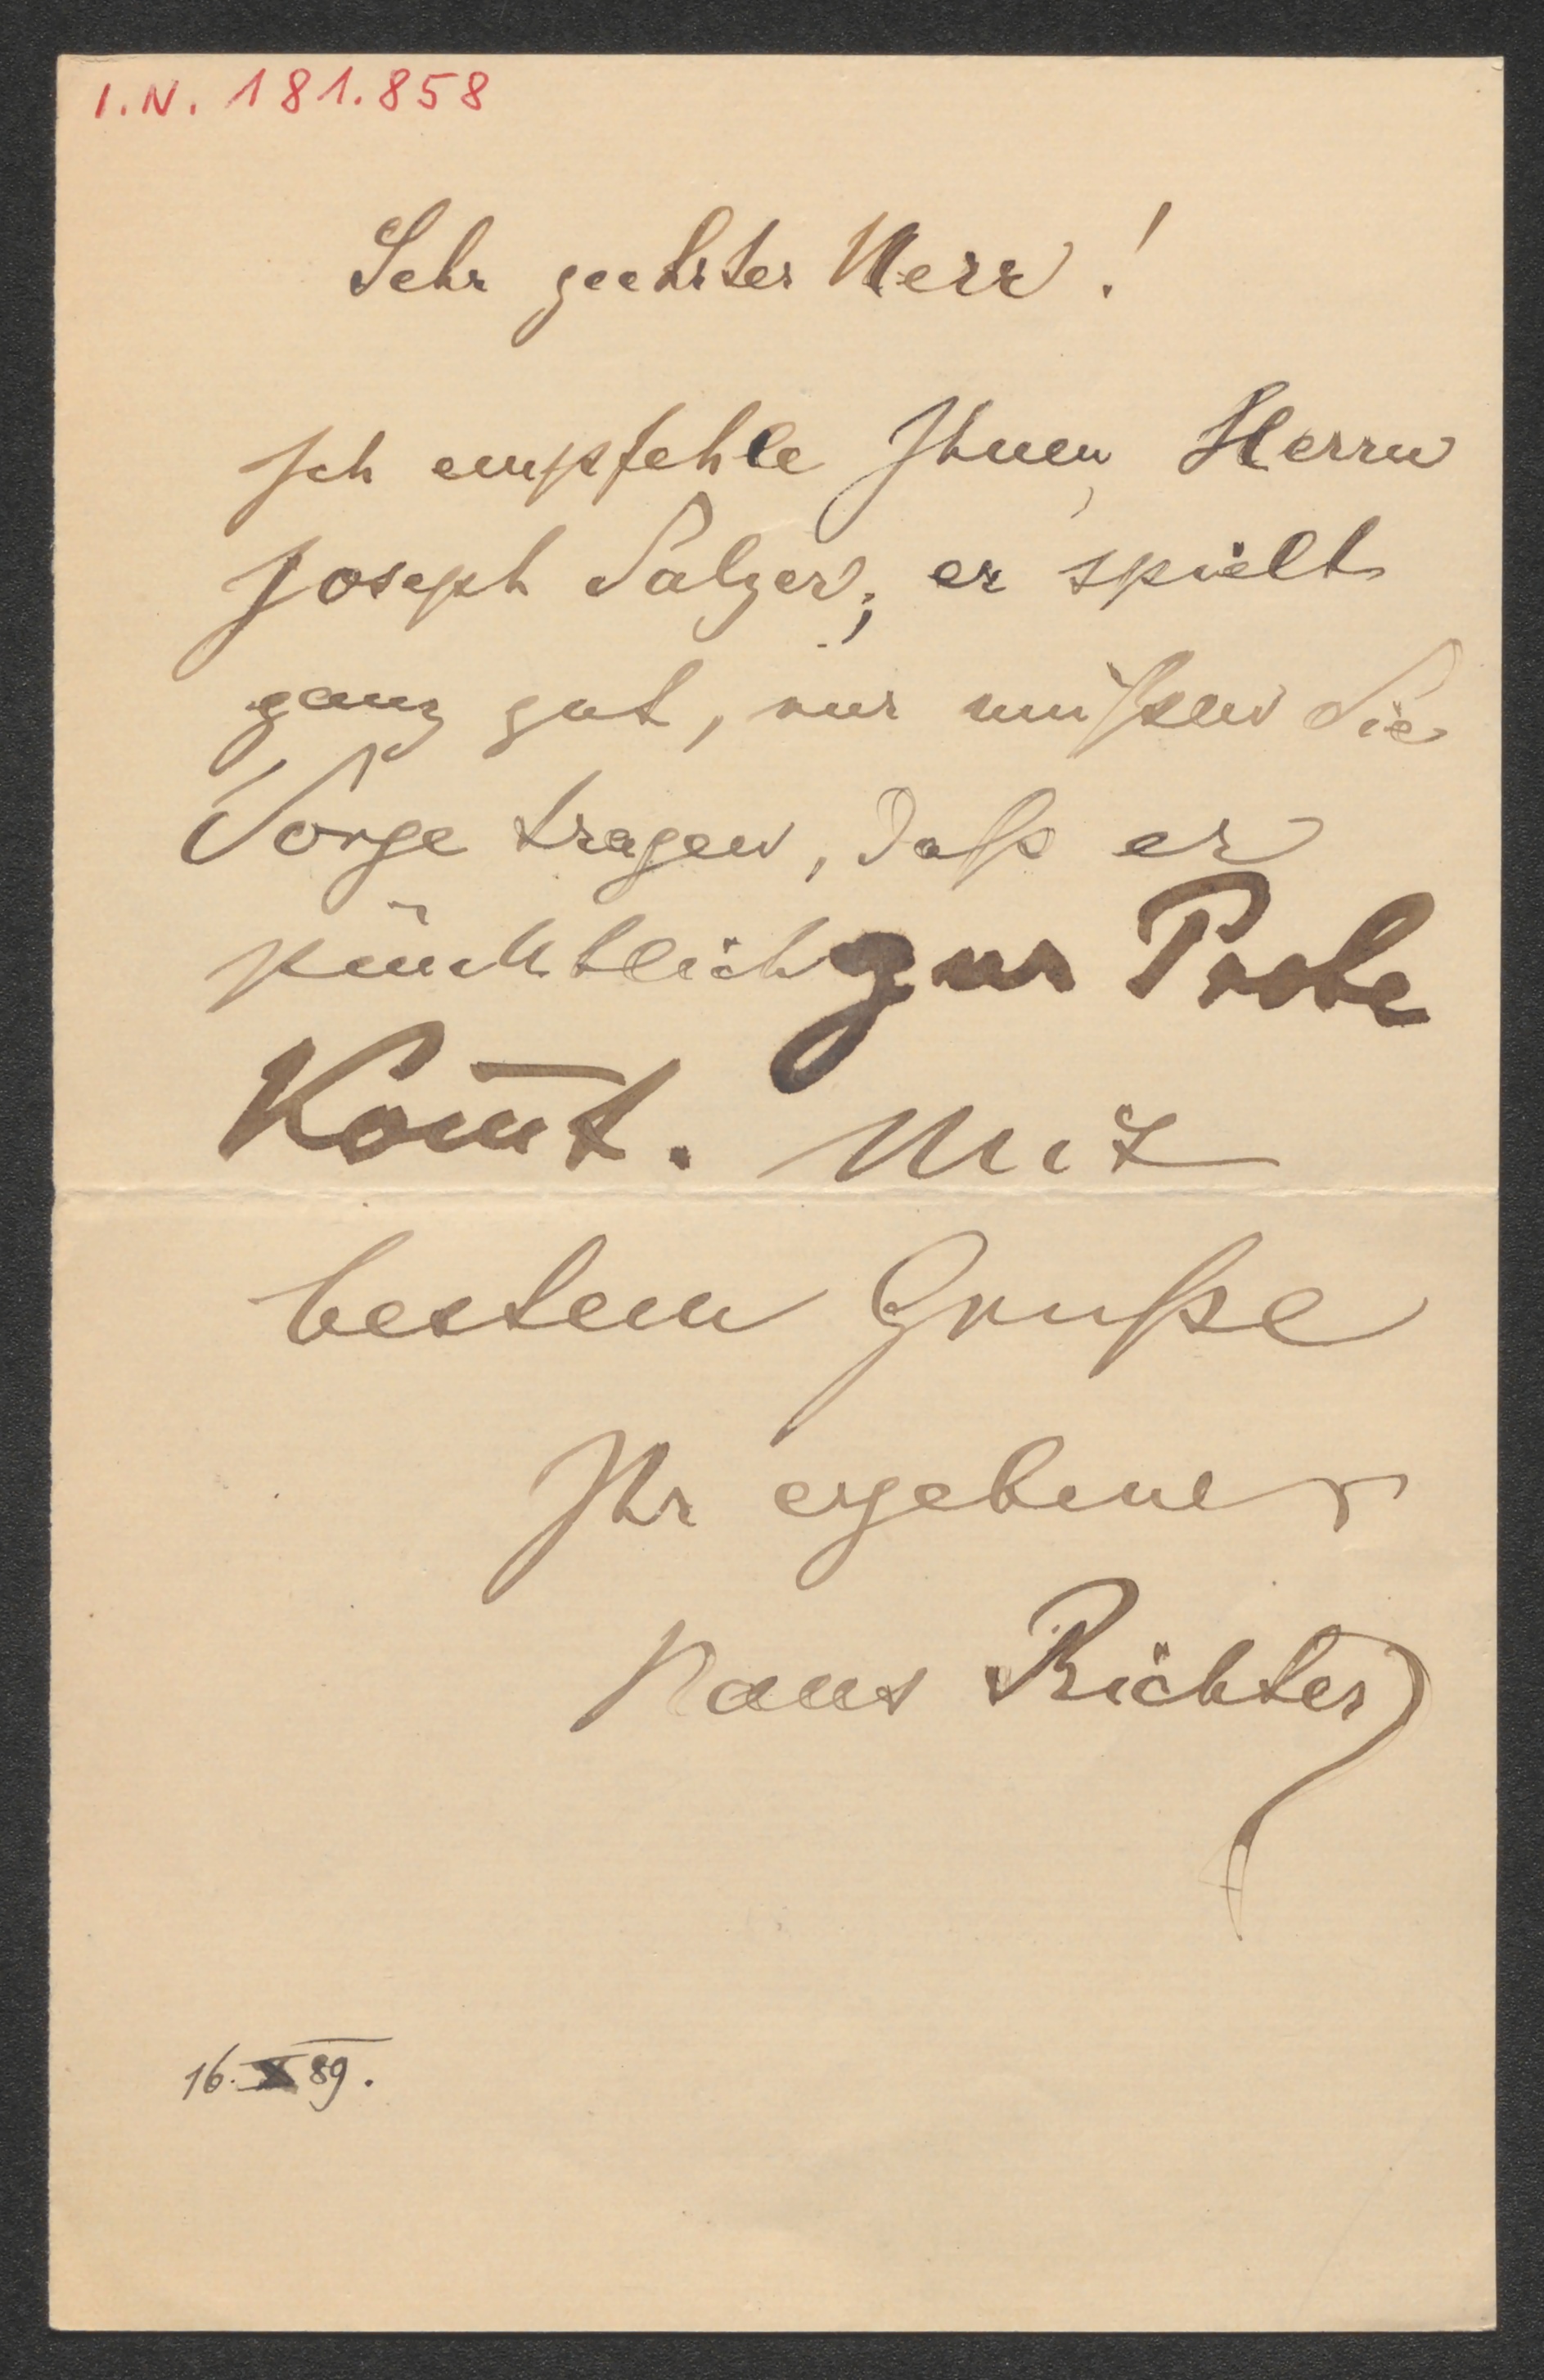 I.N. 181.858
Sehr geehrter Herr!
Ich empfehle Ihnen, Herrn
Joseph Salzer; er spielt
ganz gut, nur müßen Sie
Sorge tragen, daß er
pünchtlich zur Probe
Kom̅t. Mit
bestem Gruße
Ihr ergebener
Hans Richter
16. X 89.